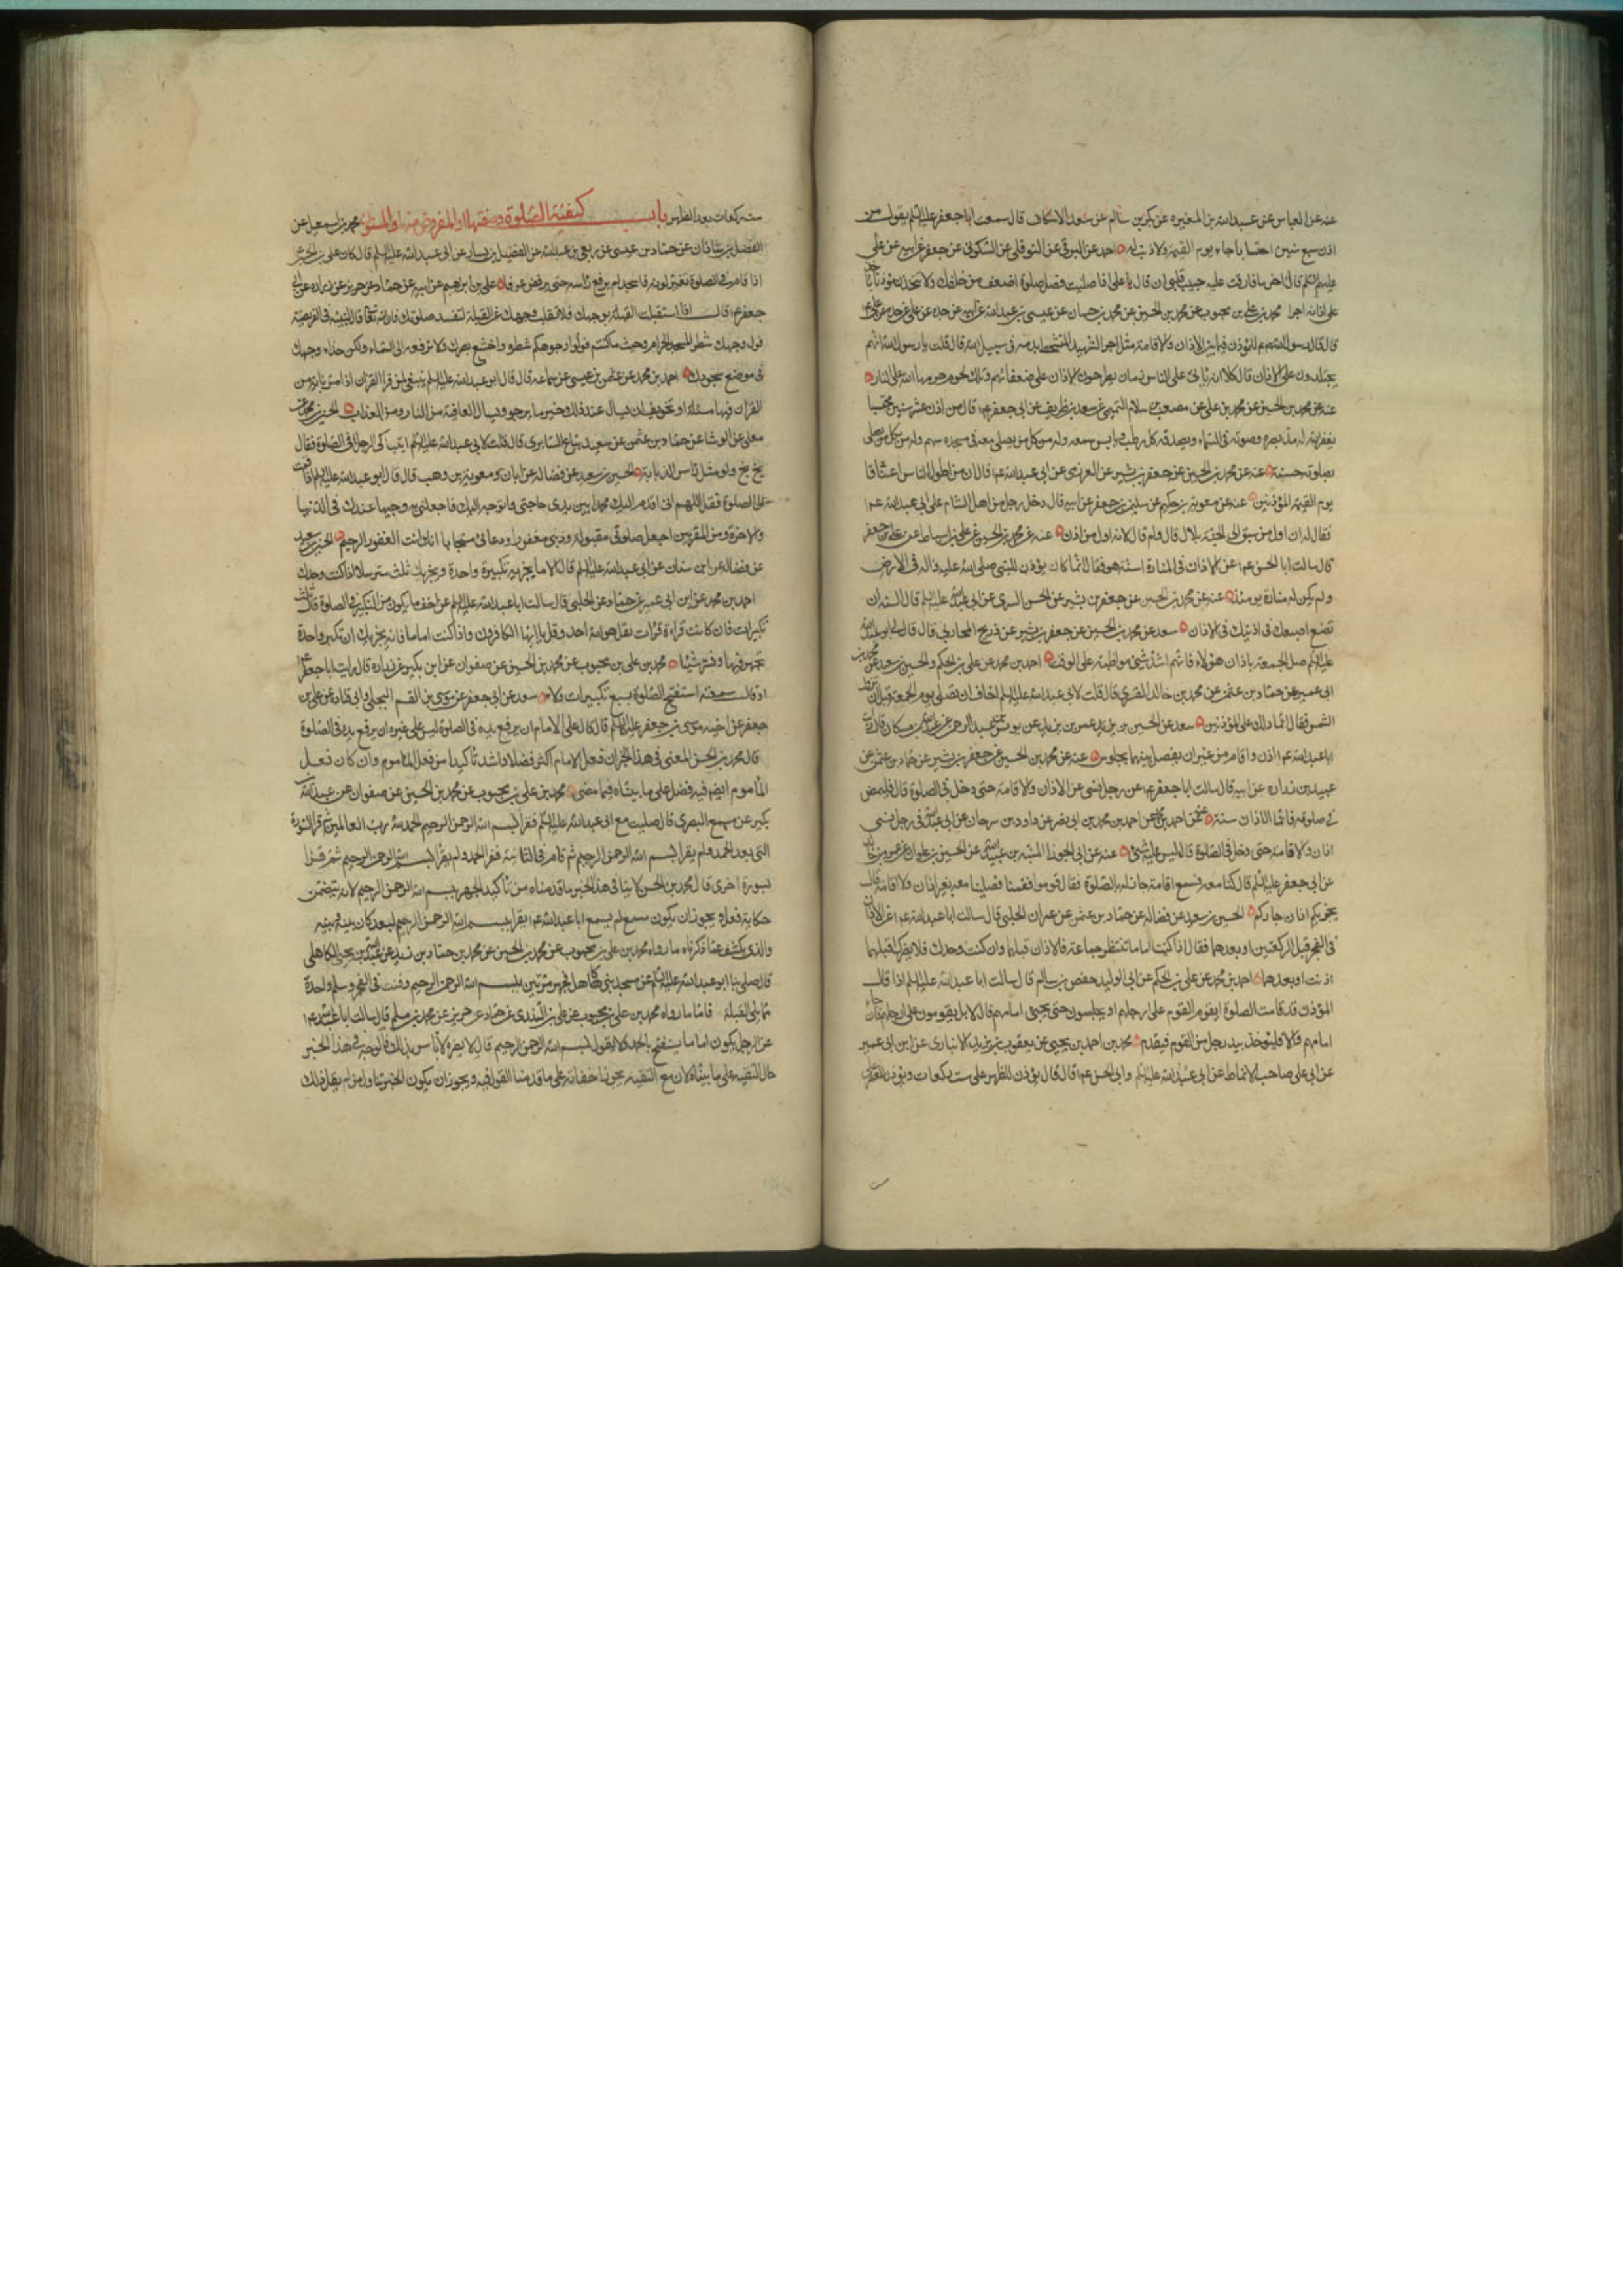 عنه عن العباس عن عبد الله بن المغيره عن بكر بن سالم عن سعد الاسكاف قال سمعت ابا جعفر عليه السلم يقول من
اذن سبع سنين احتسابا جاء يوم القيمة ولا ذنب له احمد عن البرقى عن النوفلى عن السكونى عن جعفر عن ابيه عن على
عليهم السلم قال اخر ما فارقت عليه حبيب قلبى ان قال يا على اذا صليت فصل صلوة اضعف من خلفك ولا تتخذن مؤذنا ياخذ
على اذانه اجرا محمد بن على بن محبوب عن محمد بن الحسين عن محمد بن حسان عن عيسى بن عبد الله عن ابيه عن جده عن على
قال قال رسول الله للمؤذن فيما بين الاذان والاقامة مثل اجر الشهيد المتشحط بدمه فى سبيل الله قال قلت يا رسول الله انهم
يجتلدون على الاذان قال كلا انه ياتى على الناس زمان يطرحون الاذان على ضعفائهم وتلك لحوم حرمها الله على النار
عنه عن محمد بن الحسين عن محمد بن على عن مصعب بن سلام التميمى عن سعد بن طريف عن ابى جعفر قال من اذن عشر سنين محتسبا
يغفر الله له مد بصره وصوته فى السماء ويصدقه كل رطب ويابس سمعه وله من كل من يصلى معه فى مسجده سهم وله من كل من يصلى
بصلوته حسنة عنه عن محمد بن الحسين عن جعفر بن بشير عن العرزمى عن ابى عبد الله قال ان من اطول الناس اعناقا
يوم القيمة المؤذنين عنه عن معوية بن حكيم عن سليمن بن جعفر عن ابيه قال دخل رجل من اهل الشام على ابى عبد الله
فقال له ان اول من سبق الى الجنة بلال قال ولم قال لانه اول من اذن عنه عن محمد بن الحسين عن على بن اسباط عن على بن جعفر
قال سالت ابا الحسن عن الاذان فى المنارة اسنة هو فقال انما كان يؤذن للنبى صلى الله عليه واله فى الارض
ولم يكن له منارة يومئذ عنه عن محمد بن الحسين عن جعفر بن بشير عن الحسن السرى عن ابى عبد الله عليه السلم قال السنة ان
تضع اصبعك فى اذنيك فى الاذان سعد عن محمد بن الحسين عن جعفر بن بشير عن ذريح المحاربى قال قال لى ابو عبد الله
عليه السلم صل الجمعة باذان هؤلاء فانهم اشد شئ مواظبة على الوقت احمد بن محمد عن على بن الحكم والحسين بن سعيد عن محمد بن
ابى عمير عن حماد بن عثمن عن محمد بن خالد القسرى قال قلت لابى عبد الله عليه السلم اخاف ان نصلى يوم الجمعة قبل ان تزول
الشمس فقال انما ذلك على المؤذنين سعد عن الحسين بن عمر بن يزيد عن يونس بن عبد الرحمن عن عبد الله بن مسكان قال رايت
ابا عبد الله اذن واقام من غير ان يفصل بينهما بجلوس عنه عن محمد بن الحسين عن جعفر بن بشير عن حماد بن عثمن عن
عبيد بن زراره عن ابيه قال سالت ابا جعفر عن رجل نسى عن الاذان والاقامة حتى دخل فى الصلوة قال فليمض
فى صلوته فانما الاذان سنة عنه عن احمد بن محمد بن ابى نصر عن داود بن سرحان عن ابى عبد الله فى رجل نسى
اذان ولاقامة حتى دخل فى الصلوة قال ليس عليه شئ عنه عن ابى الجوزا المنبه بن عبيد الله عن الحسين بن علوان عن عمرو بن خالد
عن ابى جعفر عليه السلم قال كنا معه فسمع اقامة جار له بالصلوة فقال قوموا فقمنا فصلينا معه بغير اذان ولا اقامة قال
يجزيكم اذان جاركم الحسين بن سعيد عن فضالة عن حماد بن عثمن عن عمران الحلبى قال سالت ابا عبد الله عن الاذان
فى الفجر قبل الركعتين او بعدهما فقال اذا كنت اماما تنتظر جماعة فالاذان قبلها وان كنت وحدك فلا يضرك اقبلهما
اذنت او بعدهما احمد بن محمد عن على بن الحكم عن ابى الوليد حفص بن سالم قال سالت ابا عبد الله عليه السلم اذا قال
المؤذن قد قامت الصلوة ايقوم القوم على ارجلهم او يجلسون حتى يجئ امامهم قال لا بل يقومون على ارجلهم فان جاء
امامهم والا فليؤخذ بيد رجل من القوم فيقدم محمد بن احمد بن يحيى عن يعقوب بن يزيد الانبارى عن ابن ابى عمير
عن ابى على صاحب الانماط عن ابى عبد الله عليه السلم وابى الحسن قال قال يؤذن للظهر على ست ركعات ويؤذن للعصر على
ست ركعات بعد الظهر باب كيفية الصلوة وصفتها والمفروض منها والمسنون محمد بن اسمعيل عن
الفضل بن شاذان عن حماد بن عيسى عن ربعى بن عبد الله عن الفضيل بن يسار عن ابى عبد الله عليه السلم قال كان على بن الحسين
اذا قام فى الصلوة تغير لونه فاذا سجد لم يرفع راسه حتى يرفض عرقا على بن ابرهيم عن ابيه عن حماد عن حريز عن زراره عن ابى
جعفر قال اذا استقبلت القبلة بوجهك فلا تقلب وجهك عن القبلة لتفسد صلوتك فان الله تعالى قال لنبيه فى الفريضة
فول وجهك شطر المسجد الحرام وحيث ما كنتم فولوا وجوهكم شطره واخشع ببصرك فلا ترفعه الى السماء ولكن حذاء وجهك
فى موضع سجودك احمد بن محمد عن عثمن بن عيسى عن سماعة قال قال ابو عبد الله عليه السلم ينبغى لمن قرا القران اذا مر باية من
القران فيها مسئلة او تخويف ان يسال عند ذلك خير ما يرجو ويسال العافية من النار ومن العذاب الحسين بن محمد عن
معلى عن الوشا عن حماد بن عثمن عن سعيد بياع السابرى قال قلت لابى عبد الله عليه السلم ايتباكى الرجل فى الصلوة فقال
بخ بخ ولو مثل راس الذبابة الحسين بن سعيد عن فضالة عن ابان ومعوية بن وهب قال قال ابو عبد الله عليه السلم اذا قمت
الى الصلوة فقل اللهم انى اقدم اليك محمدا بين يدى حاجتى واتوجه اليك فاجعلنى به وجيها عندك فى الدنيا
والاخرة ومن المقربين اجعل صلوتى مقبولة وذنبى مغفورا ودعائى مستجابا انك انت الغفور الرحيم الحسين بن سعيد
عن فضالة عن ابن سنان عن ابى عبد الله عليه السلم قال الامام يجزيه تكبيرة واحدة ويجزيك ثلث مترسلا اذا كنت وحدك
احمد بن محمد عن ابن ابى عمير عن حماد عن الحلبى قال سالت ابا عبد الله عليه السلم عن اخف ما يكون من التكبير فى الصلوة قال ثلث
تكبيرات فان كانت قراءة قرات بقل هو الله احد وقل يا ايها الكافرون واذا كنت اماما فانه يجزيك ان تكبر واحدة
تجهر فيها وتسر ستا محمد بن على بن محبوب عن محمد بن الحسين عن صفوان عن ابن بكير عن زراره قال رايت ابا جعفر
او قال سمعته استفتح الصلوة بسبع تكبيرات ولاء سعد عن ابى جعفر عن موسى بن القسم البجلى وابى قتادة عن على بن
جعفر عن اخيه موسى بن جعفر عليه السلم قال قال على الامام ان يرفع يده فى الصلوة ليس على غيره ان يرفع يده فى الصلوة
قال محمد بن الحسن المعنى فى هذا الخبر ان فعل الامام اكثر فضلا واشد تاكيدا من فعل الماموم وان كان فعل
الماموم ايضا فيه فضل على ما بيناه فيما مضى محمد بن على بن محبوب عن محمد بن الحسين عن صفوان عن عبد الله بن
بكير عن مسمع البصرى قال صليت مع ابى عبد الله عليه السلم فقرا بسم الله الرحمن الرحيم الحمد لله رب العالمين ثم قرا السورة
التى بعد الحمد ولم يقرا بسم الله الرحمن الرحيم ثم قام فى الثانية فقرا الحمد ولم يقرا بسم الله الرحمن الرحيم ثم قرا
بسورة اخرى قال محمد بن الحسن لا ينافى هذا الخبر ما قدمناه من تاكيد الجهر ببسم الله الرحمن الرحيم لانه يتضمن
حكاية فعل و يجوز ان يكون مسمع لم يسمع ابا عبد الله يقرا بسم الله الرحمن الرحيم لبعد كان بينه وبينه
والذى يكشف عما ذكرناه ما رواه محمد بن على بن محبوب عن محمد بن الحسين عن محمد بن حماد بن زيد عن عبد الله بن يحيى الكاهلى
قال صلى بنا ابو عبد الله عليه السلم عن مسجد بنى كاهل فجهر مرتين ببسم الله الرحمن الرحيم وقنت فى الفجر وسلم واحدة
مما يلى القبلة فاما ما رواه محمد بن على بن محبوب عن على بن السندى عن حماد عن حريز عن محمد بن مسلم قال سالت ابا عبد الله
عن الرجل يكون اماما يستفتح بالحمد ولا يقول بسم الله الرحمن الرحيم قال لا يضره لا باس بذلك فالوجه فى هذا الخبر
حال التقية على ما بيناه لان مع التقية يجوز اخفاته على ما قدمنا القول فيه ويجوز ان يكون الخبر تناول من لم يقل ذلك